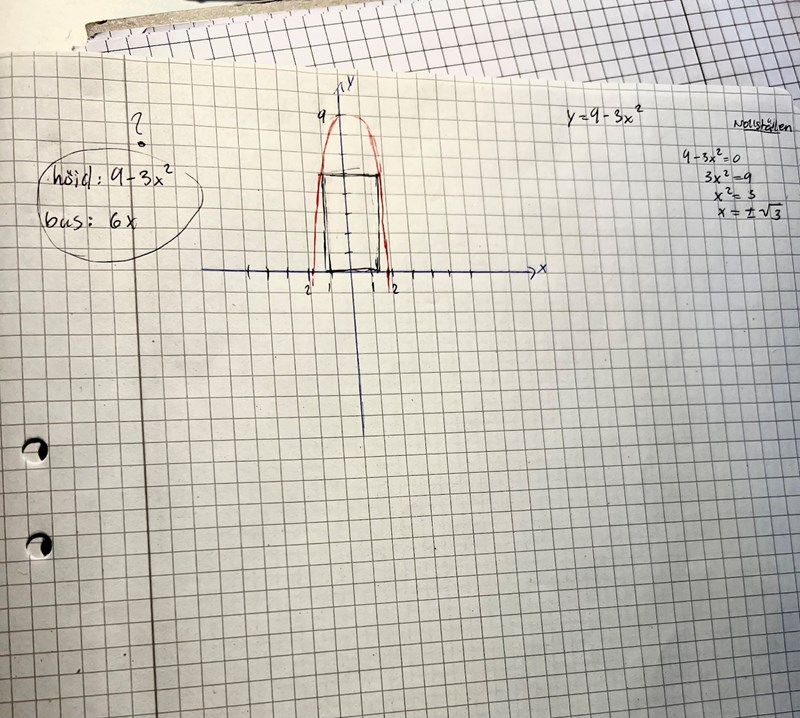 ?
höjd: 9-3x²
bas: 6x
y
9
x
2 1 1 2
y=9-3x²
Nollställen
9-3x²=0
3x²=9
x²=3
x=±√3